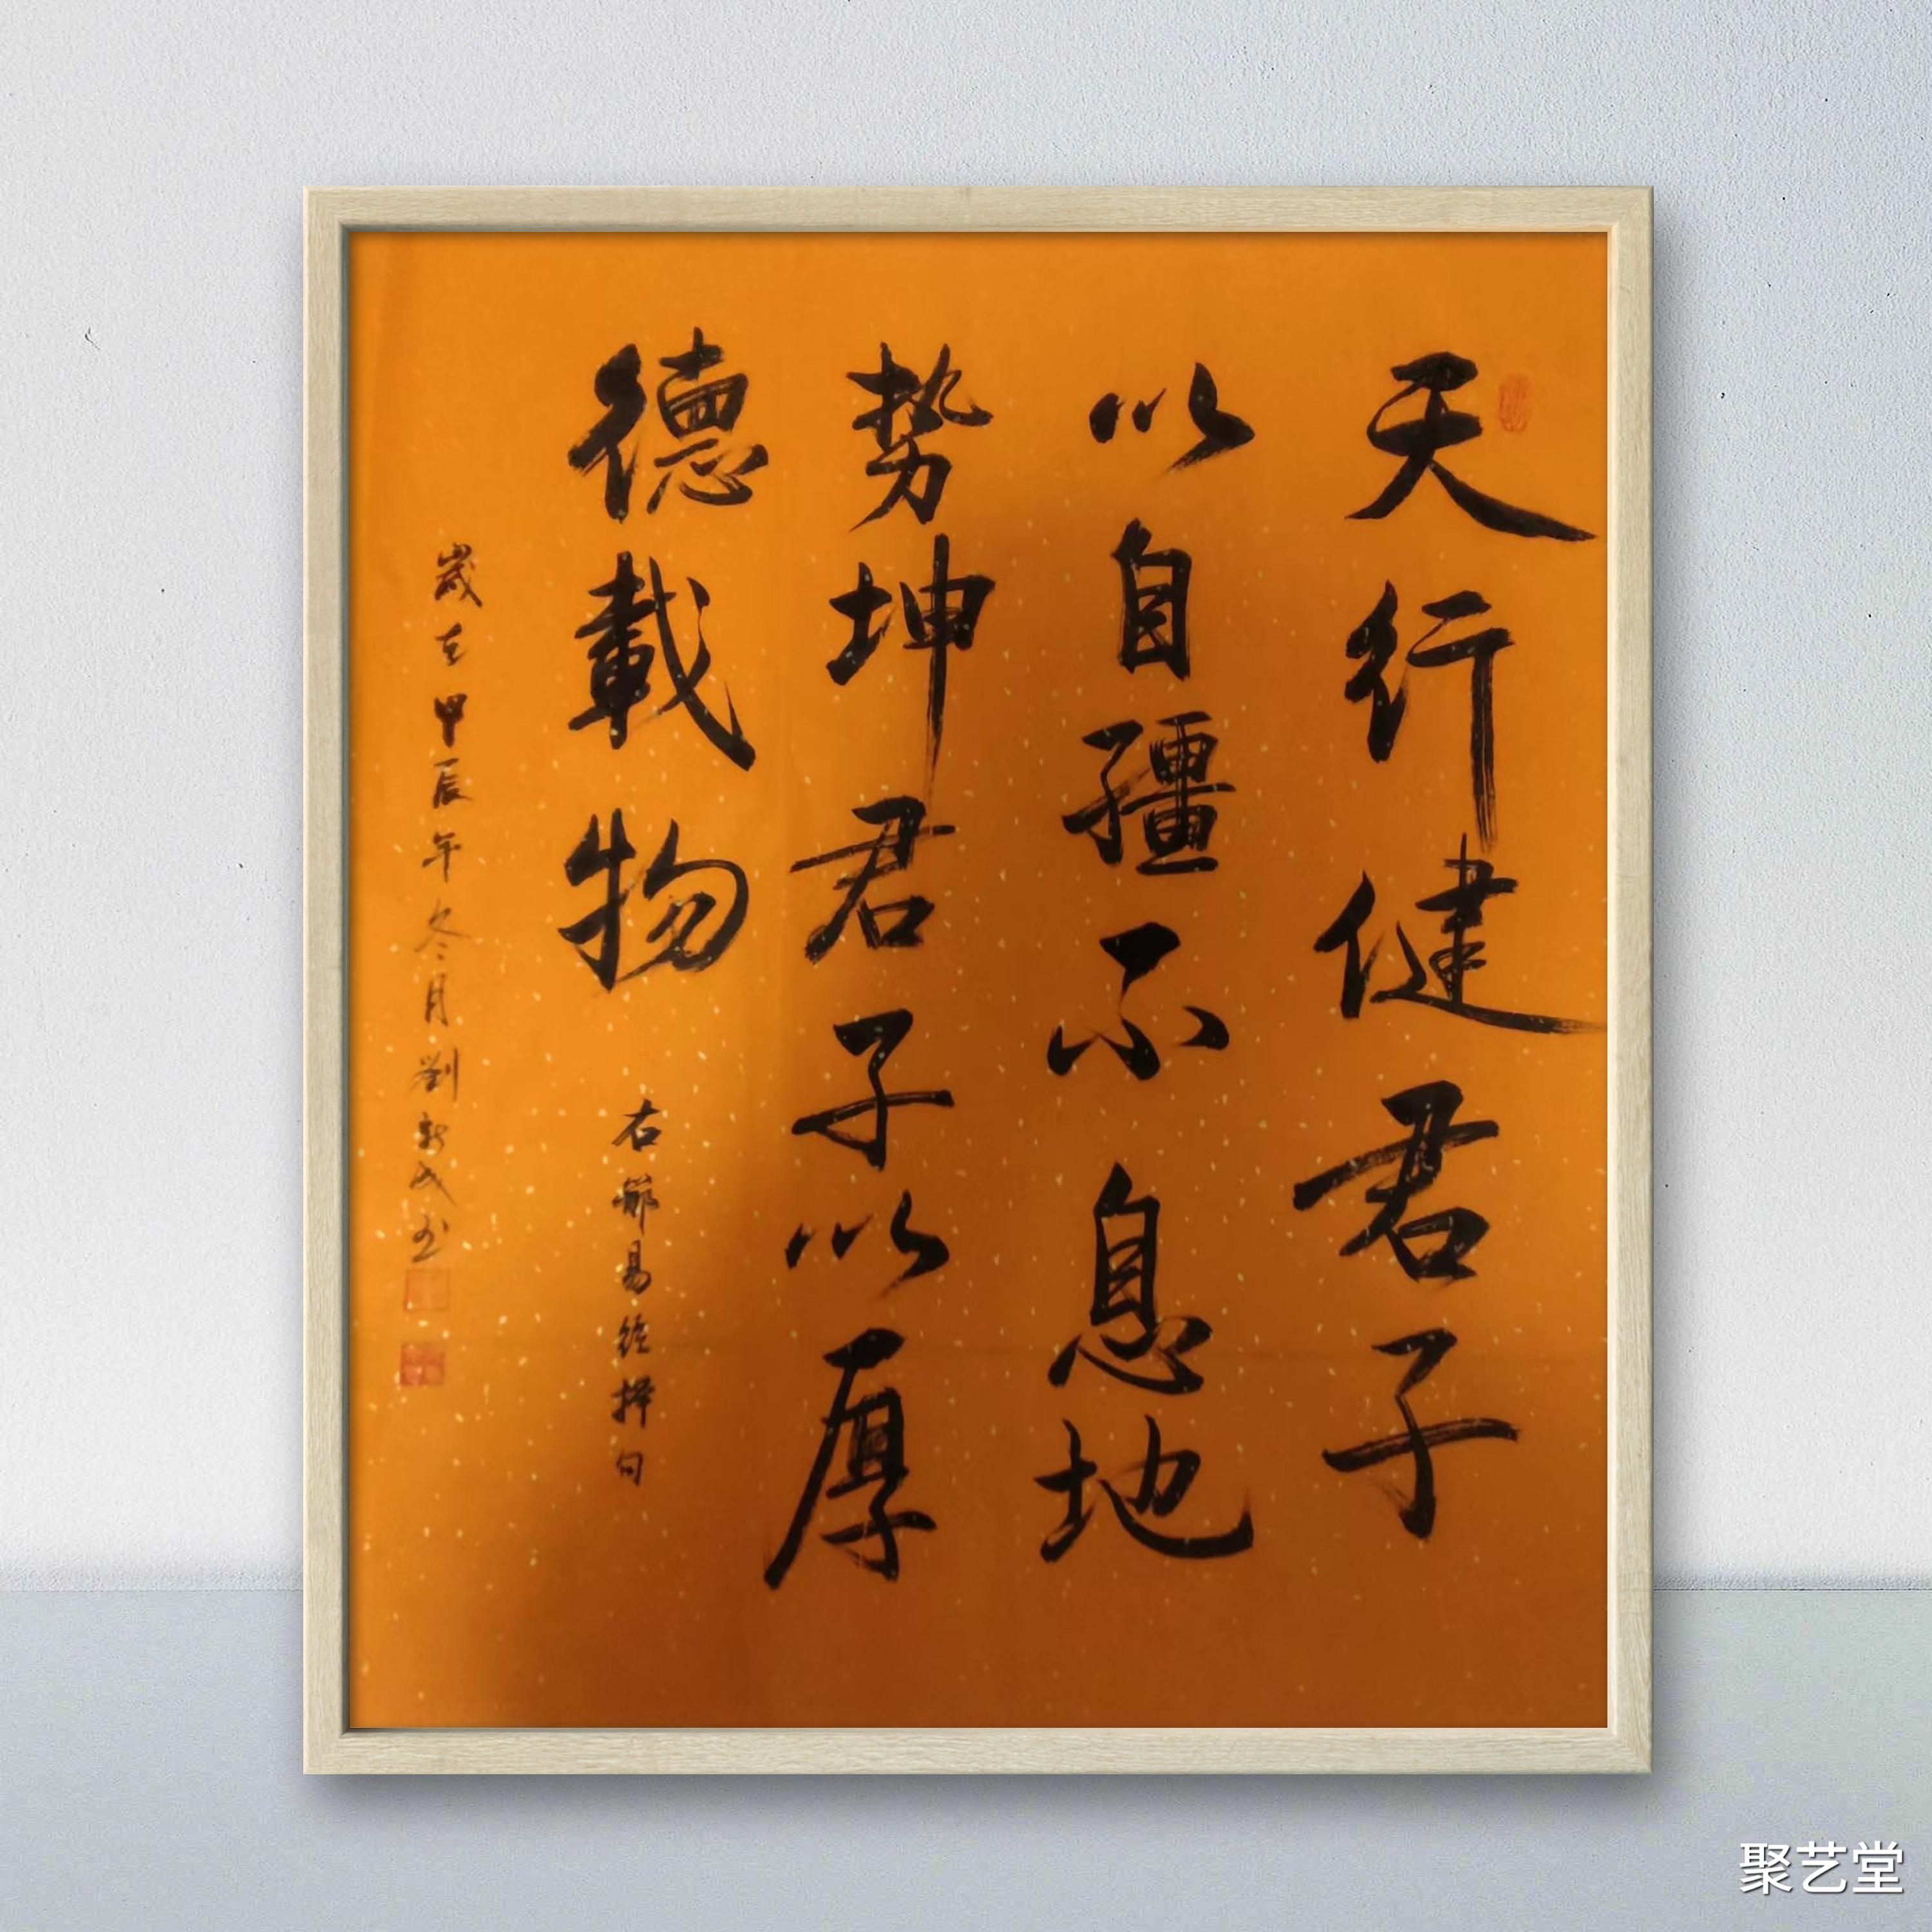 天行健君子
以自彊不息地
势坤君子以厚
德載物
右節易經择句
歲在甲辰年冬月劉新成书
聚艺堂